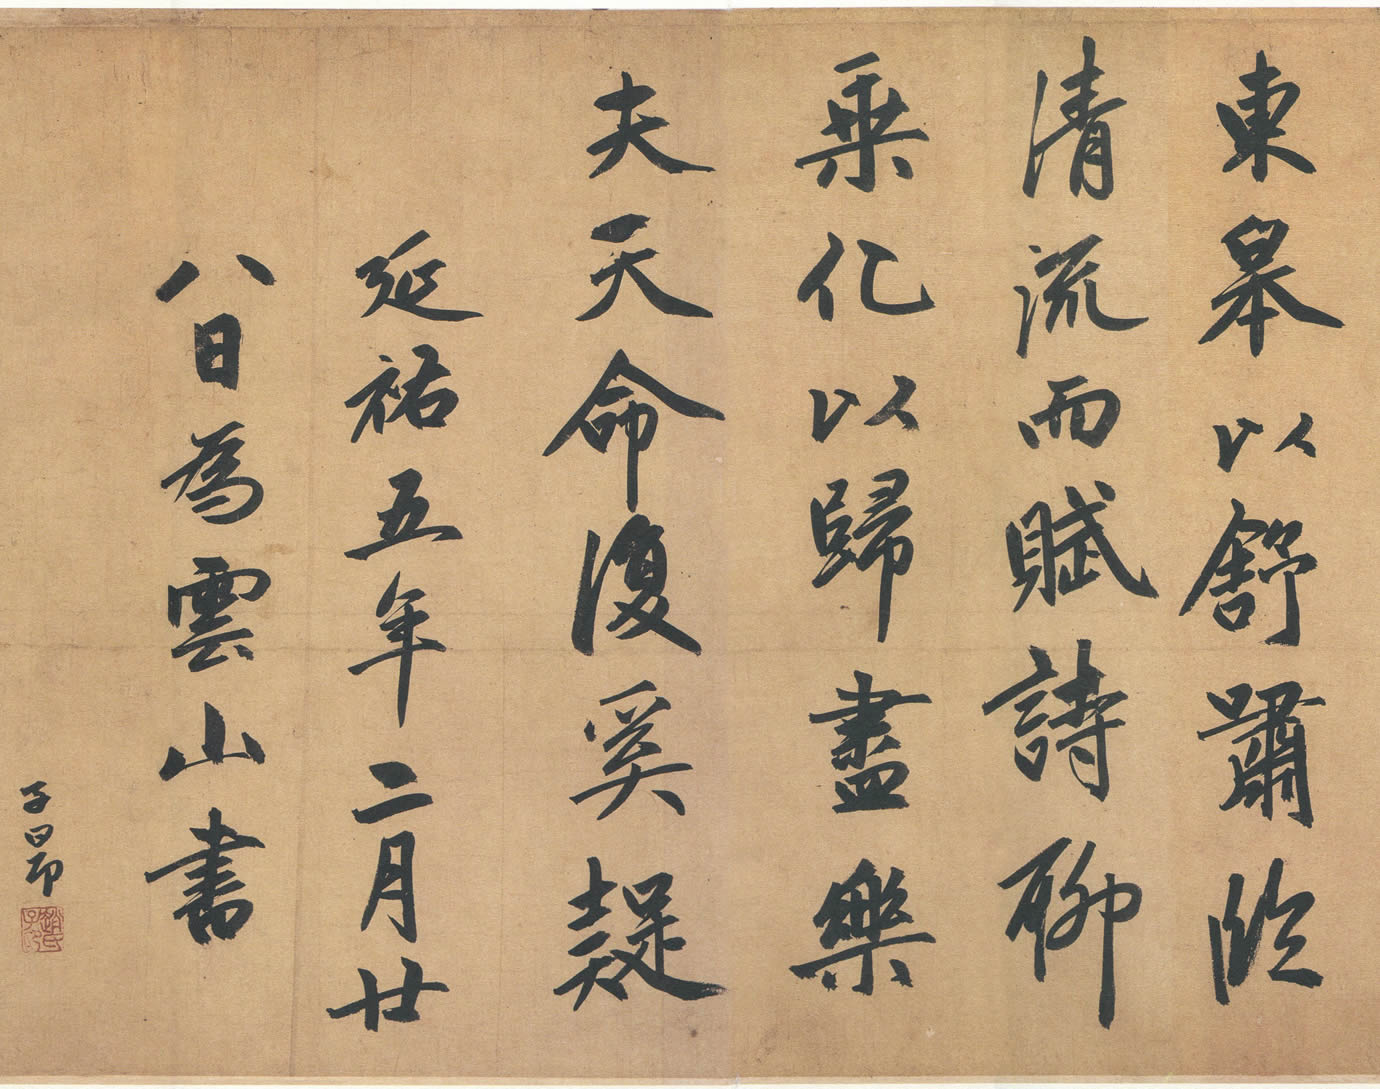 東皋以舒嘯臨
清流而賦詩聊
乗化以歸盡樂
夫天命復奚疑
延祐五年二月廿
八日為雲山書
子昂
趙氏子昂